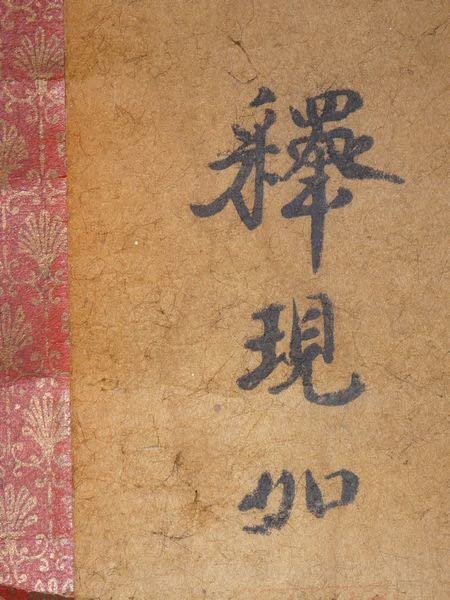 釋現如